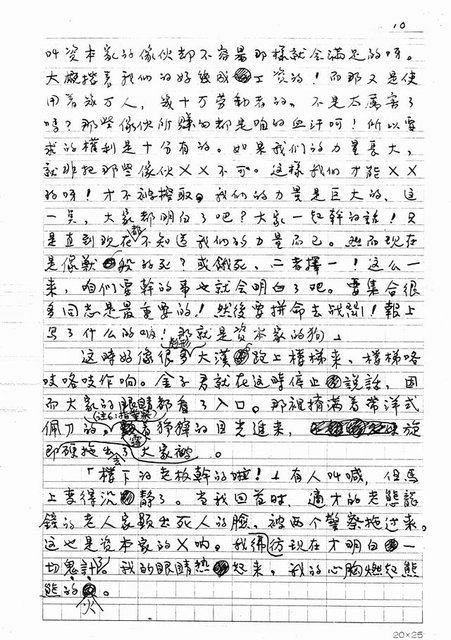 10
叫资本家的傢伙却不容易那樣就会滿足的呀。
大概搾着我们的好幾成工资的！而那又是使
用着幾万人，幾十万劳動者的。不是太厲害了
嗎？那些傢伙所賺的都是咱的血汗呵！所以要
求的權利是十分有的。如果我们的力量長大，
就非把那些傢伙××不可。這樣我们才能××
的呀！才不被搾取。我们的力量是巨大的，這
一奌，大家都明白了吧？大家一起幹的話！只
是直到現在都不知道我们的力量而已。然而現在
是像獸一般的死？或餓死，二者擇一！這么一
来，咱们要幹的事也就会明白了吧。要集合很
多同志是最重要的！然後要拼命去战鬥！報上
写了什么的吶！那就是资本家的狗」
這時好像很多大漢跑上樓梯来，樓梯咯
吱咯吱作响。金子君就在這時停止說話，因
而大家的眼睛都看了入口。那裡積滿着带洋式
佩刀的。着狰獰的目光進来，旋
即硬拖去了大家被
「樓下的老板幹的啦！」有人叫喊，但馬
上变得沉靜了。当我回首時，適才的老熊認
錯的老人家顯出死人的臉，被两个警察拖过来。
这也是资本家的×吶。我彷彿現在才明白一
切鬼計。我的眼睛热起来，我的心胸燃起熊
熊的火。
20×25